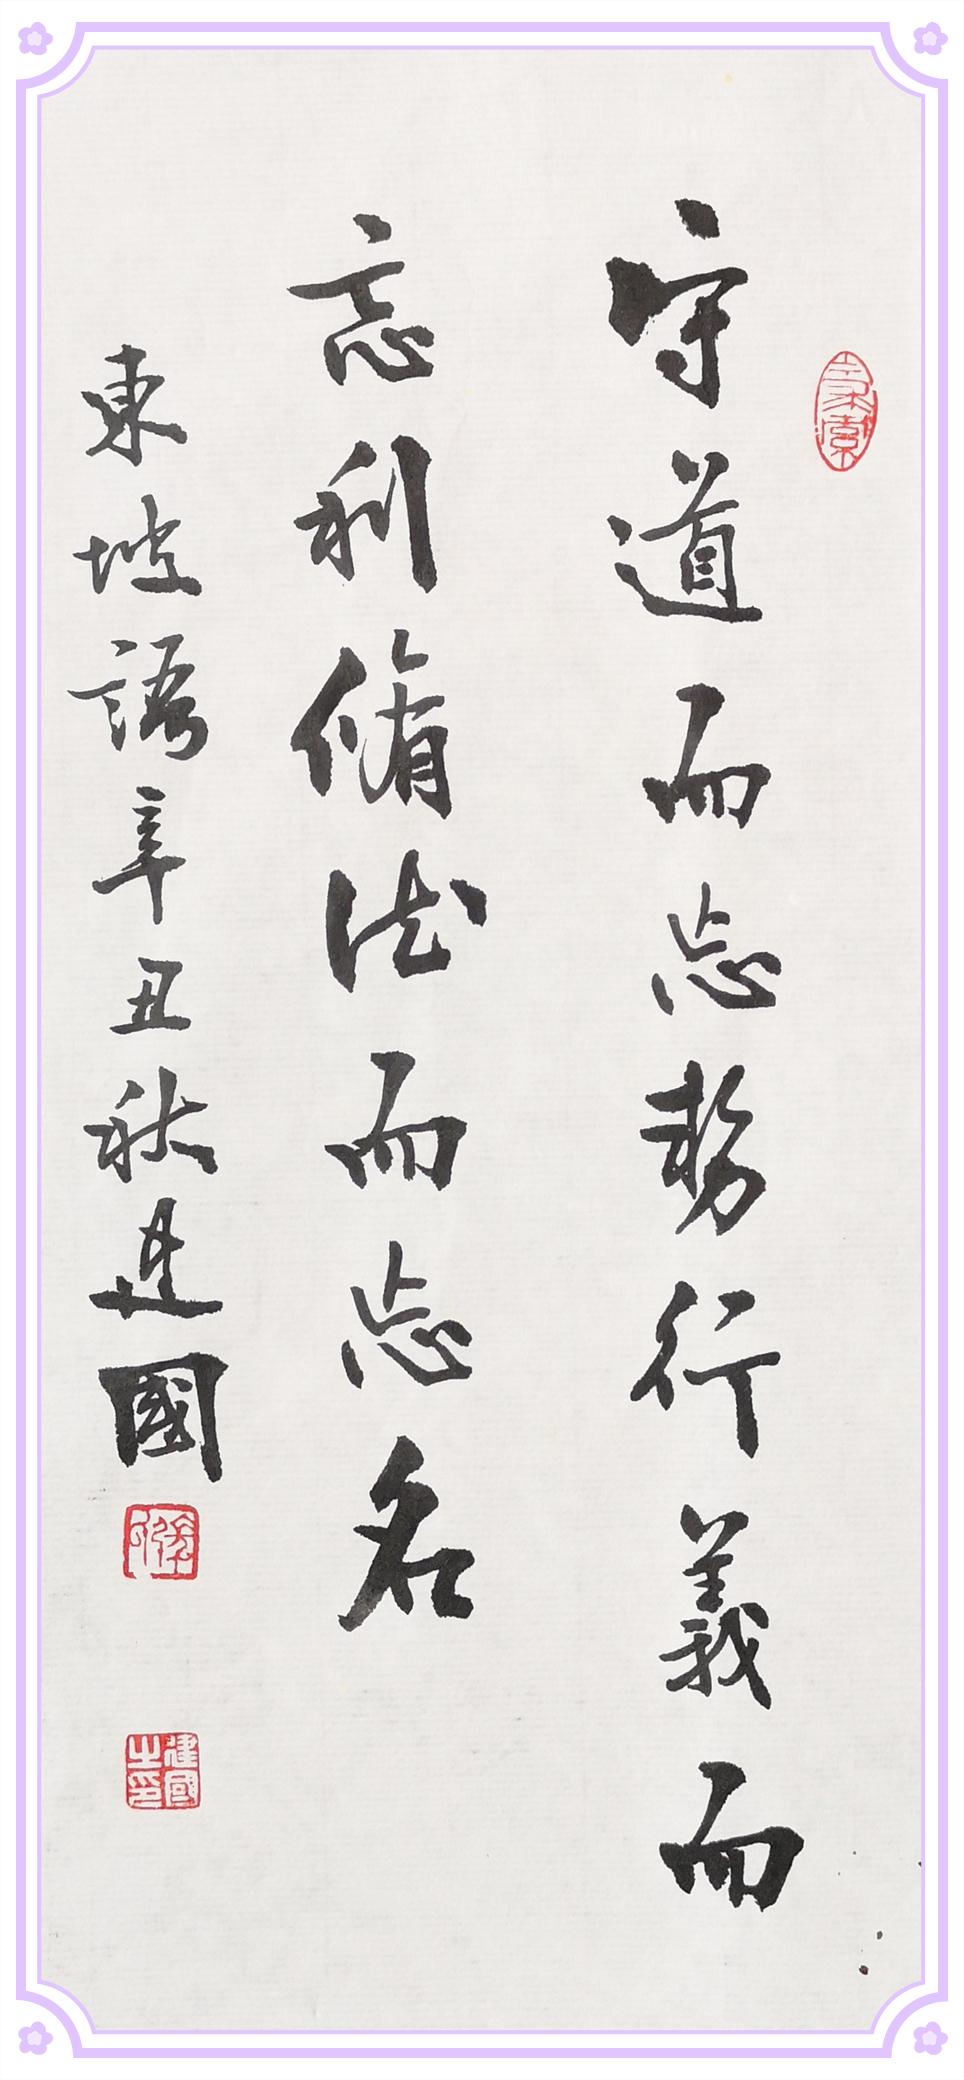 守道而忘勢行義而
忘利脩德而忘名
東坡語辛丑秋建國
建國之印